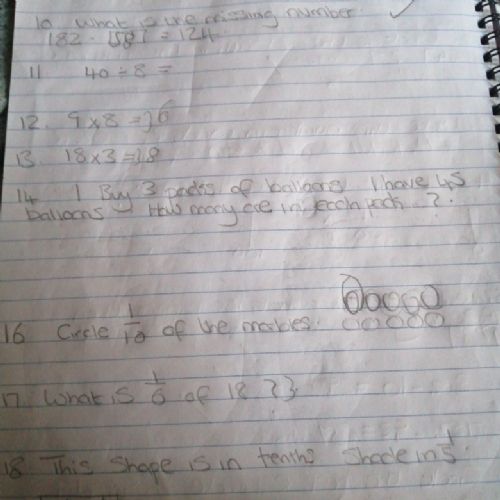 10 What is the missing number.
182 - 58? = 124
11 40 ÷ 8 =
12. 9 x 8 = 36
13 18 x 3 = 18
14 I Buy 3 packs of balloons I have 45
balloons How many are in each pack ?
16 Circle 1/10 of the marbles.
17 What is 1/6 of 18 ? 3
18 This Shape is in tenths Shade in 1/5.